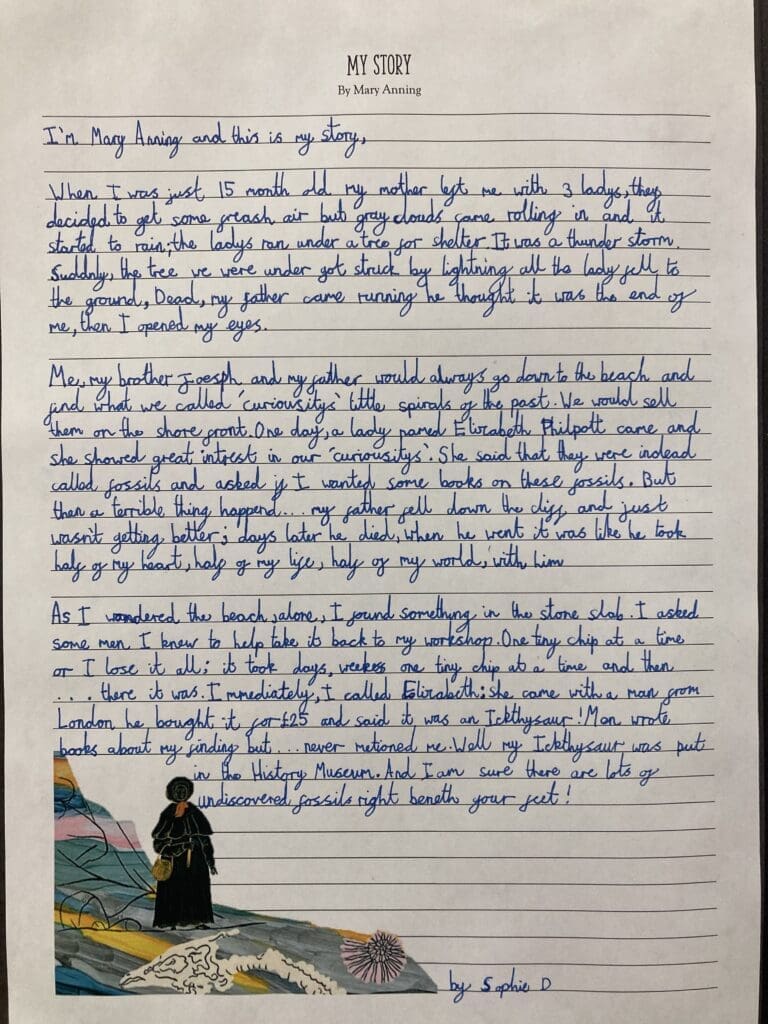 MY STORY
By Mary Anning
I'm Mary Anning and this is my story,
When I was just 15 month old my mother left me with 3 ladys, they
decided to get some freash air but gray clouds came rolling in and it
started to rain; the ladys ran under a tree for shelter. It was a thunder storm.
Suddnly, the tree we were under got struck by lightning all the lady fell to
the ground, Dead, my father came running he thought it was the end of
me, then I opened my eyes.
Me, my brother Joesph and my father would always go down to the beach and
find what we called 'curiousitys' little spirals of the past. We would sell
them on the shore front. One day, a lady named Elizabeth Philpott came and
she showed great intrest in our 'curiousitys'. She said that they were indead
called fossils and asked if I wanted some books on these fossils. But
then a terrible thing happend... my father fell down the cliff and just
wasn't getting better; days later he died, when he went it was like he took
half of my heart, half of my life, half of my world, with him
As I wandered the beach, alone, I found something in the stone slab. I asked
some men I knew to help take it back to my workshop. One tiny chip at a time
or I lose it all; it took days, weekes one tiny chip at a time and then
... there it was. Immediately, I called Elizabeth; she came with a man from
London he bought it for £25 and said it was an Ickthysaur! Men wrote
books about my finding but... never metioned me. Well my Ickthysaur was put
in the History Museum. And I am sure there are lots of
undiscovered fossils right beneth your feet!
by Sophie D